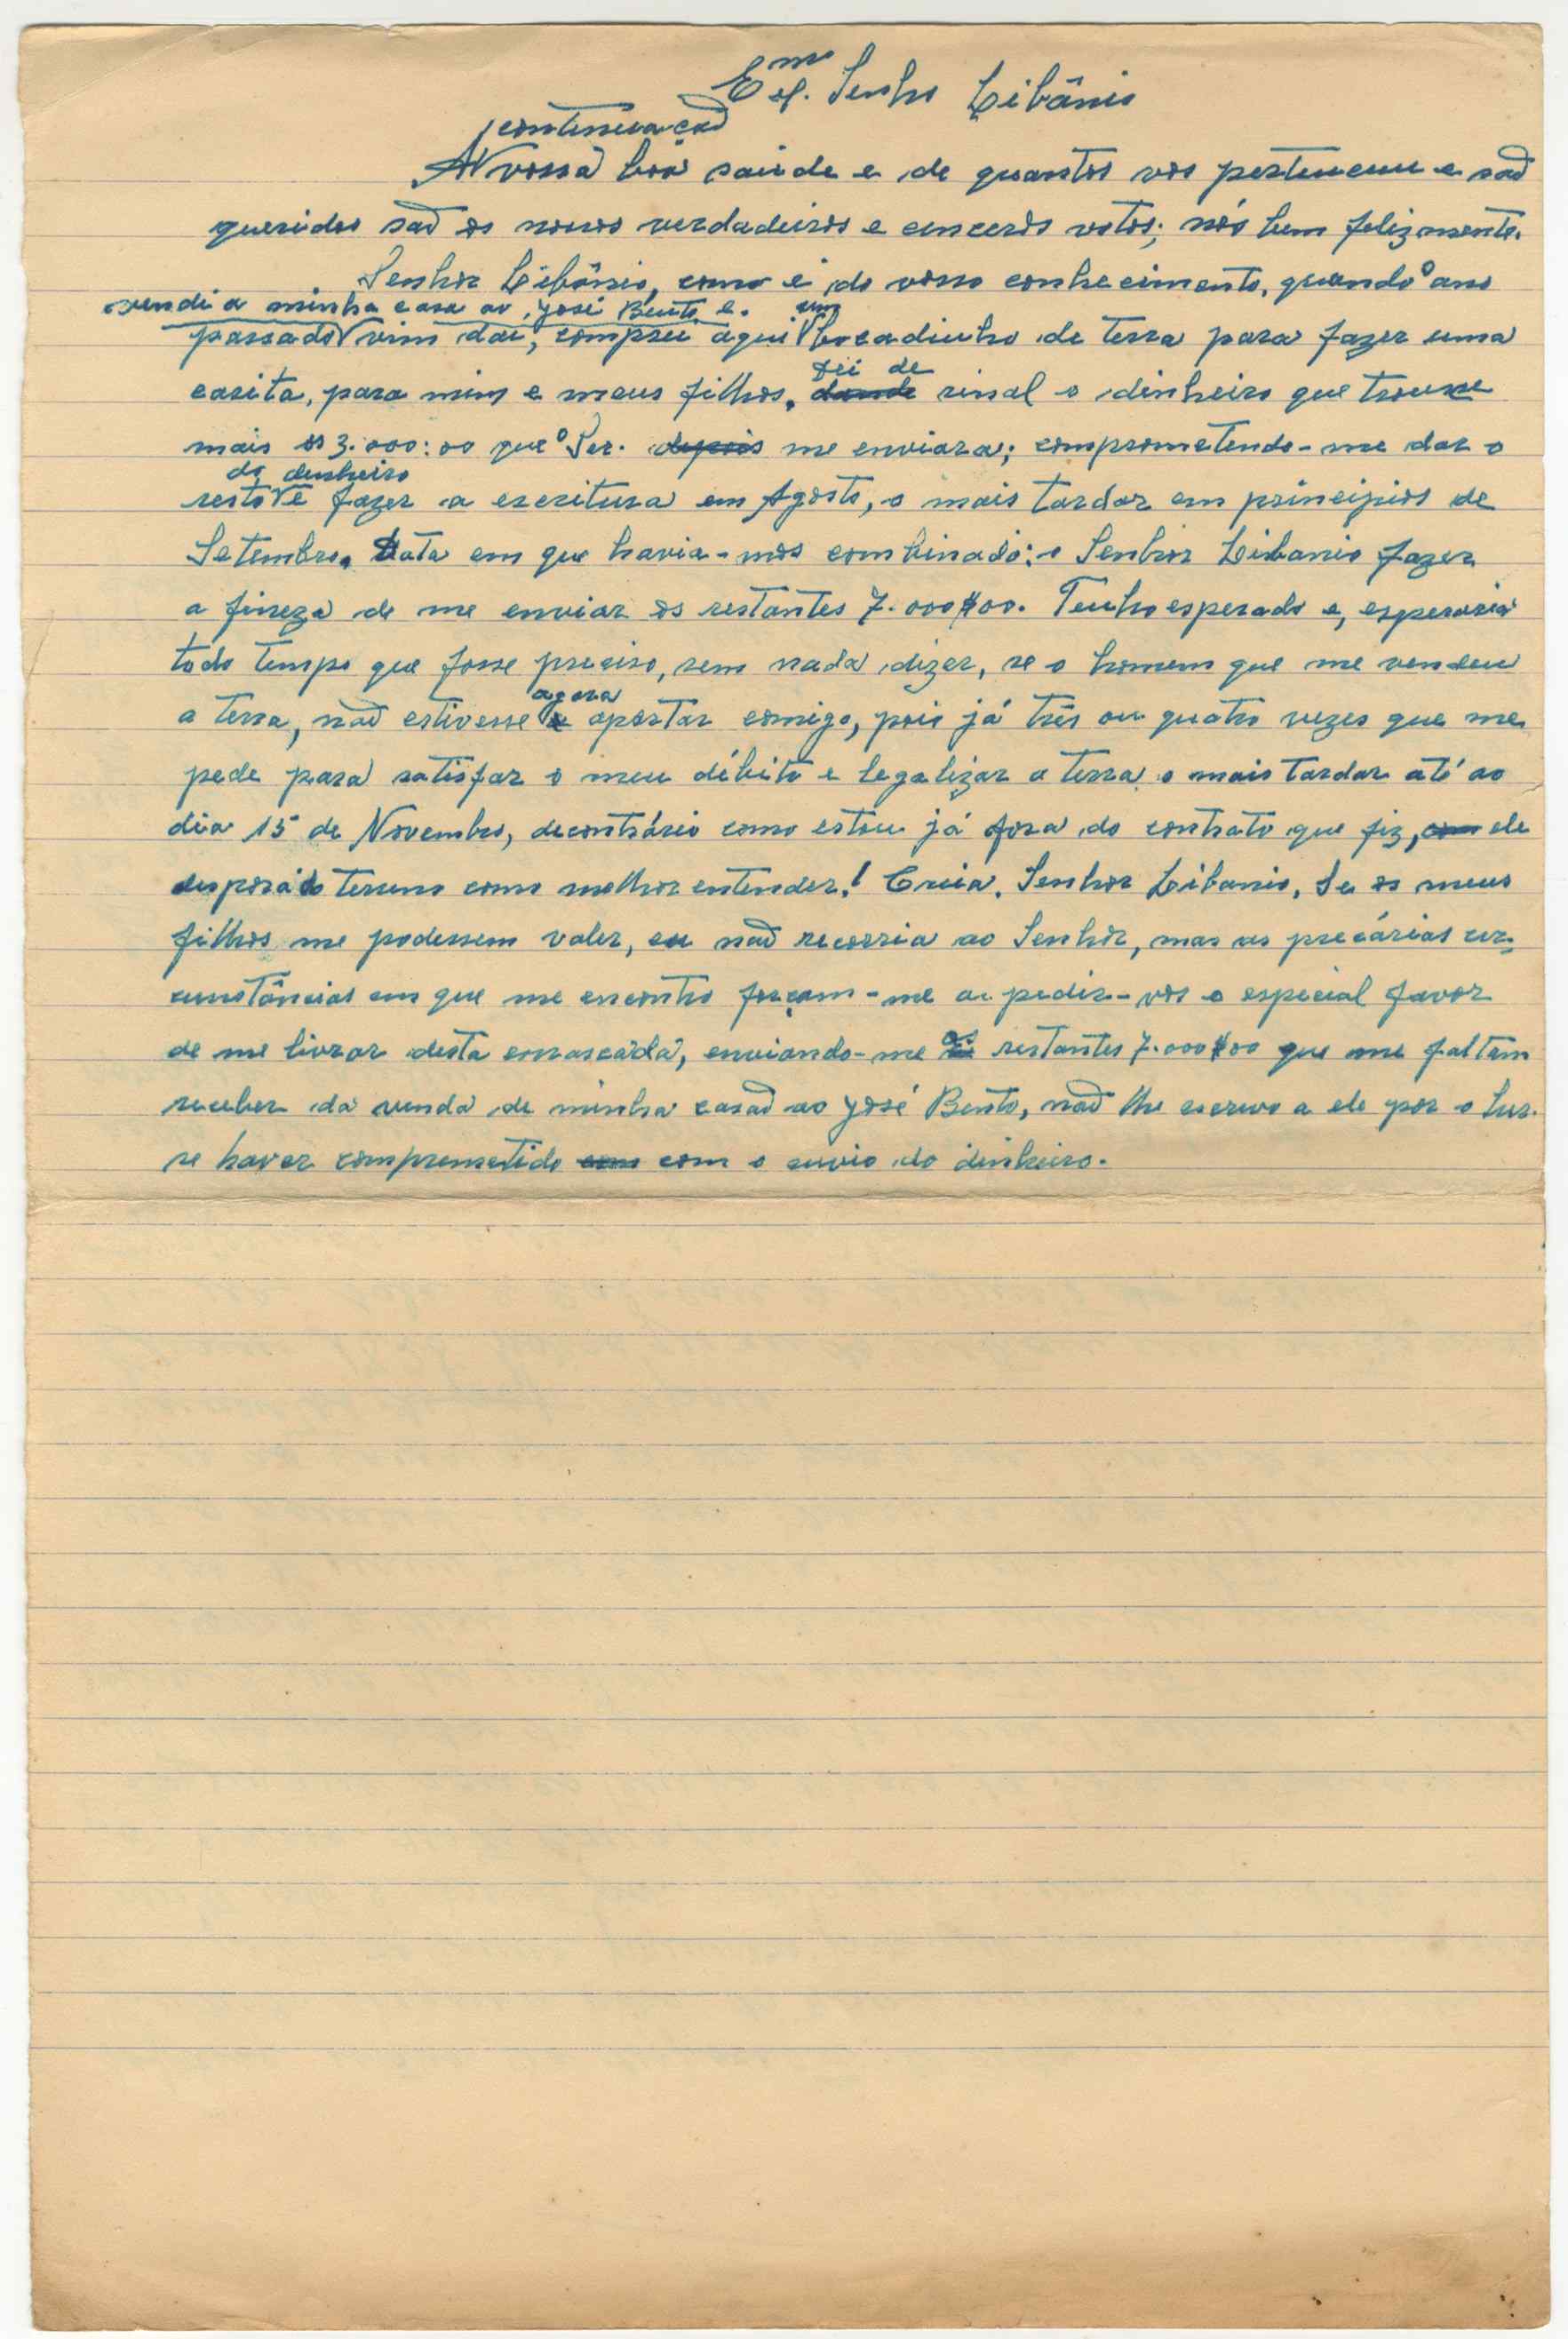 Exmº. Senho Libânio
continuação
A vossa bôa saúde e de quantos vos pertencem e são
queridos são os nossos verdadeiros e cinceros votos; nós bem felizmente.
Senhor Libânio, como é do vosso conhecimento, quando o ano
vendi a minha casa ao José Bento e. um
passado vim daí, comprei aqui bocadinho de terra para fazer uma
sei de
casita, para mim e meus filhos, dando sinal o dinheiro que trouxe
mais os 3.000:00 que o Ser. depois me enviara; comprometendo-me dar o
do dinheiro
resto e fazer a escritura em Agosto, o mais tardar em principios de
Setembro. Data em que havia-mos combinado: o Senhor Libanio fazer
a fineza de me enviar os restantes 7.000$00. Tenho esperado e, esperaria
todo tempo que fosse preciso, sem nada dizer, se o homem que me vendeu
agora
a terra, não estivesse a apertar comigo, pois já três ou quatro vezes que me
pede para satisfar o meu débito e legalizar a terra o mais tardar até ao
dia 15 de Novembro, decontrário como estou já fora do contrato que fiz, com ele
disporá do terreno como melhor entender! Creia, Senhor Libanio, Se os meus
filhos me podessem valer, eu não recorria ao Senhor, mas as precárias cir-
cunstâncias em que me encontro forçam-me a pedir-vos o especial favor
os
de me livrar desta enrascada, enviando-me restantes 7.000$00 que me faltam
receber da venda de minha casa ao José Bento, não lhe escrevo a ele por o Snr.
se haver comprometido com com o envio do dinheiro.